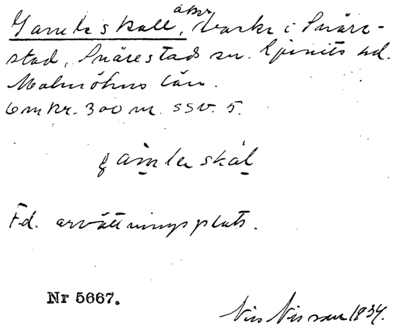 åker
Gamleskall, backe i Snåre-
stad, Snårestads sn. Ljunits hd.
Malmöhus län.
Omkr. 300 m. SSV. 5.
gamleskal
F.d. avrättningsplats.
Nr 5667.
Nils Nilsson 1934.